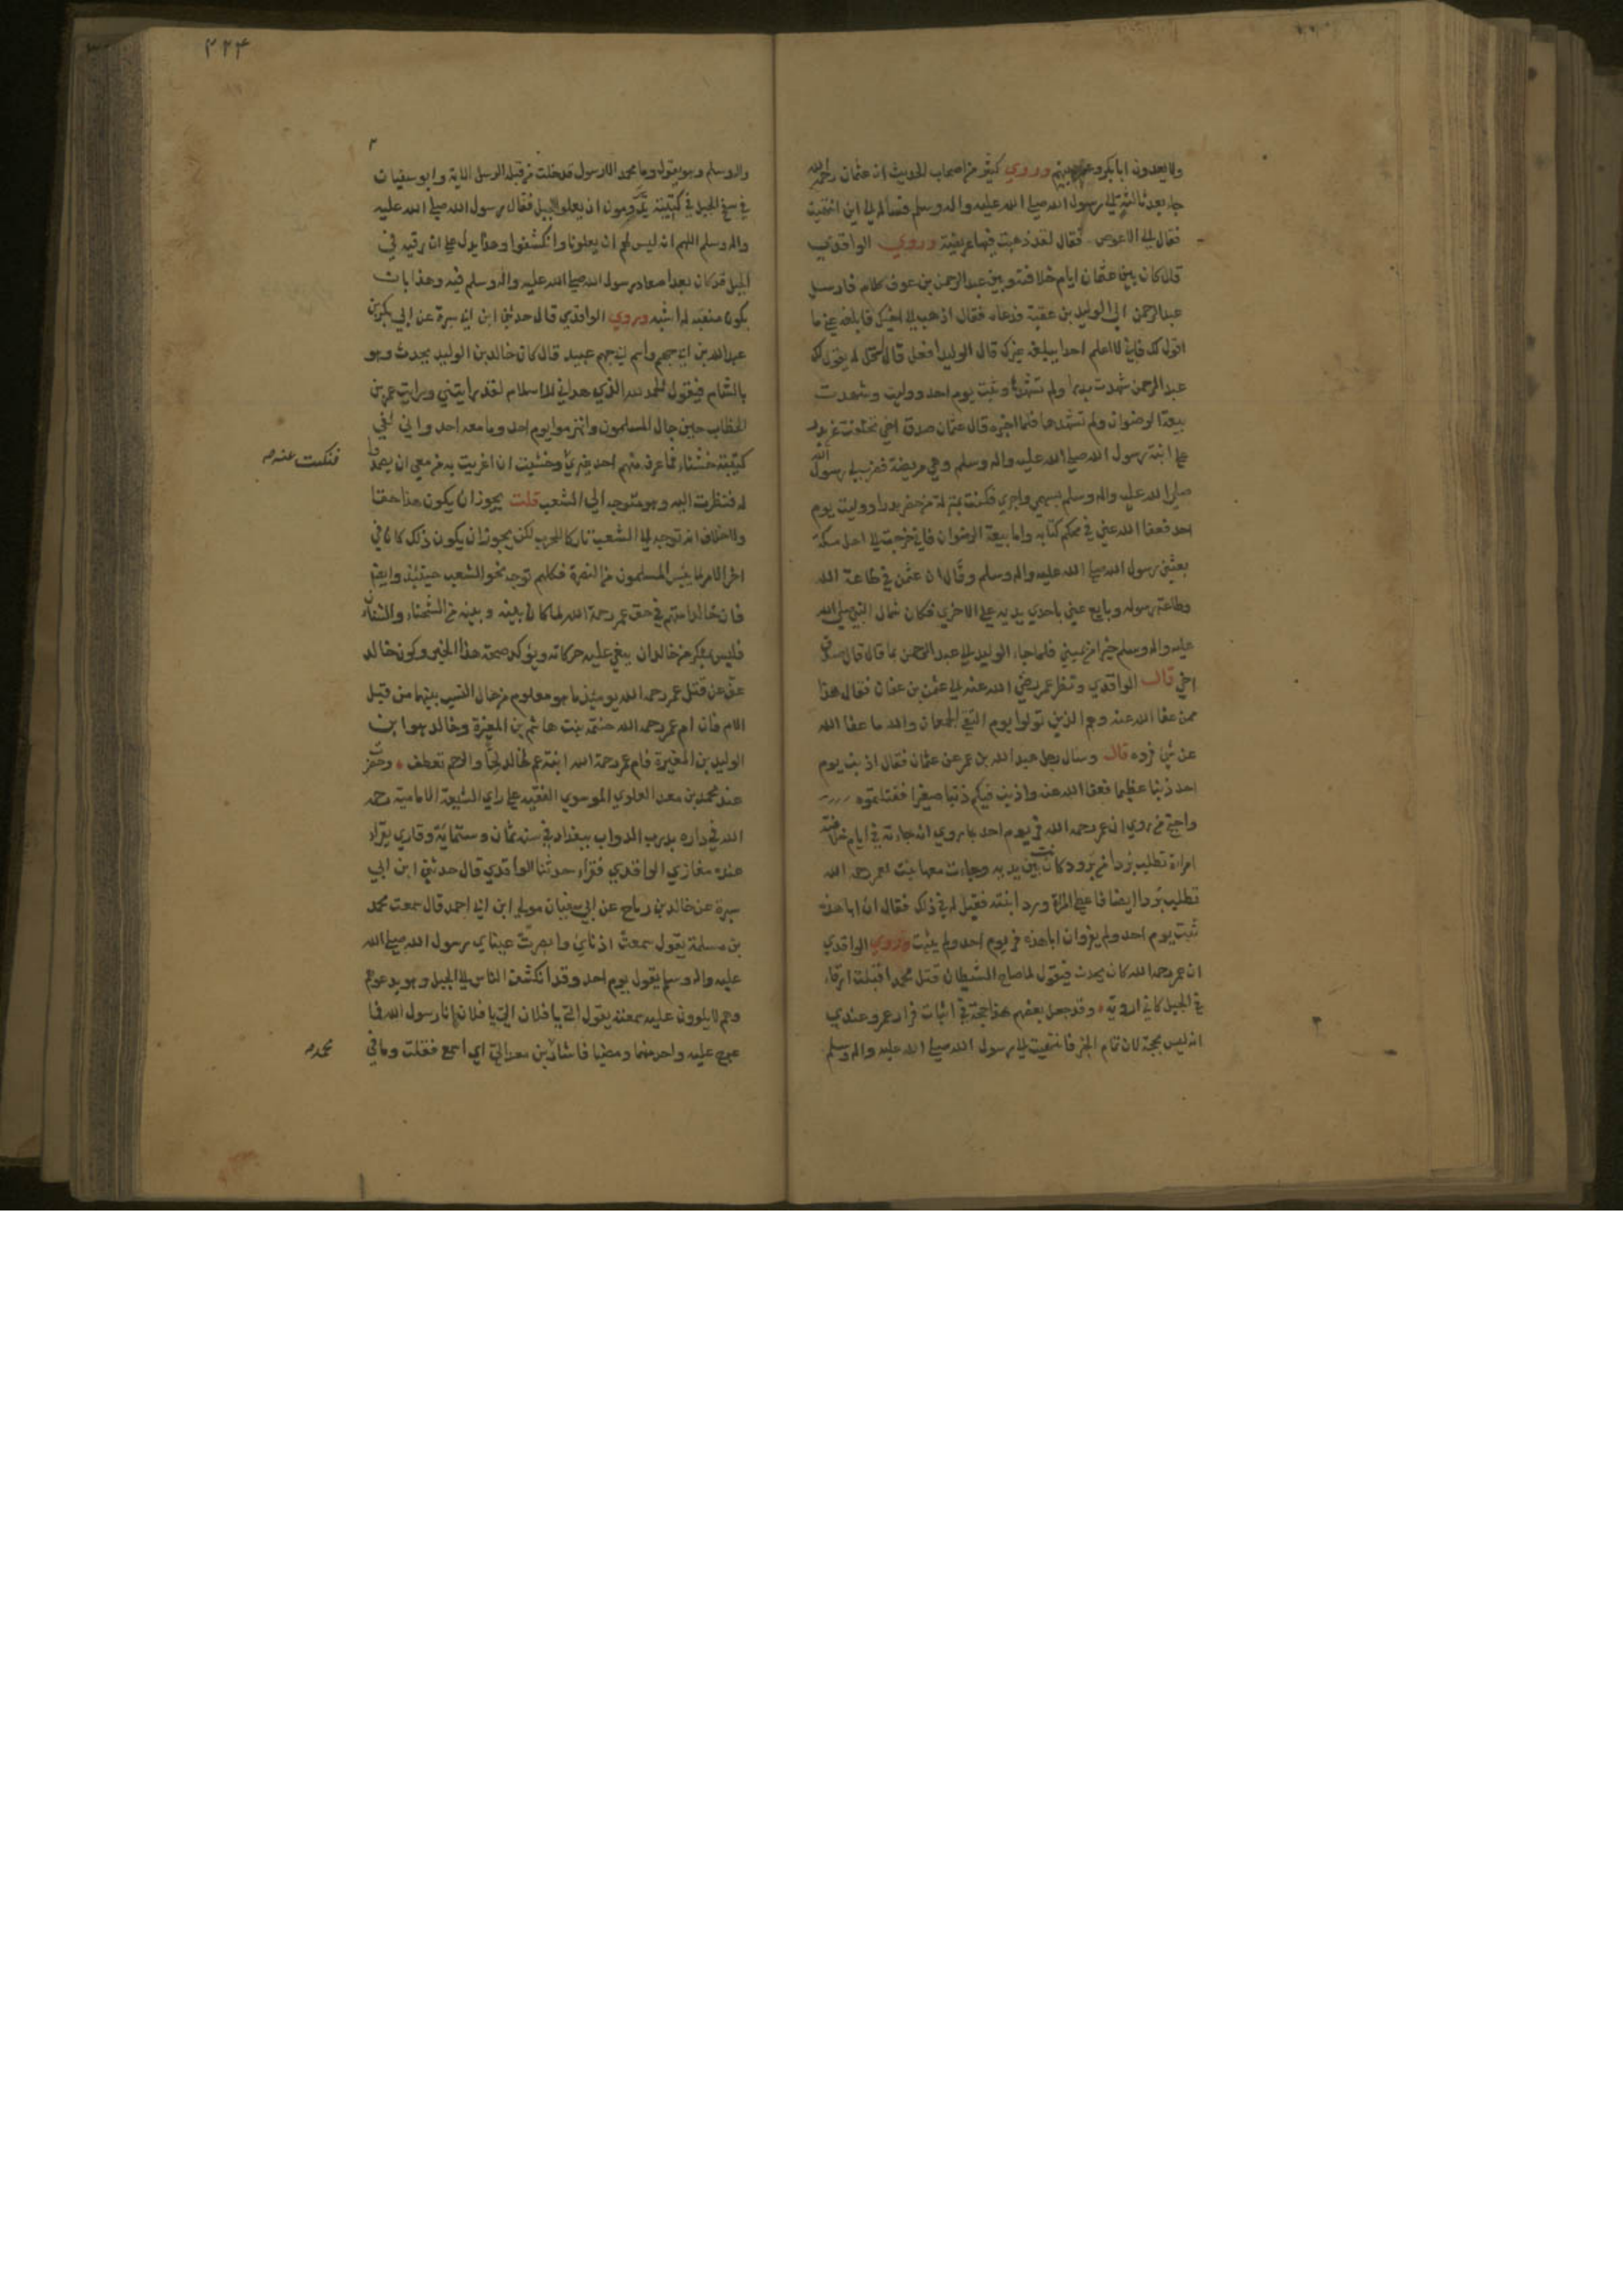 ولا يعدون ابابكر وعمر منهم وروي كثير من اصحاب الحديث ان عثمان رحمه الله
جاء بعد ثالثة الى رسول الله صلى الله عليه واله وسلم فساله الى اين انتهيت
فقال الى الاعوص فقال لقد ذهبت فيها عريضة وروي الواقدي
قال كان بين عثمان ايام خلافته وبين عبد الرحمن بن عوف كلام فارسل
عبد الرحمن الى الوليد بن عقبة فدعاه فقال اذهب الى اخيك فابلغه عني ما
اقول لك فاني لا اعلم احدا يبلغه غيرك قال الوليد افعل قال قل له يقول لك
عبد الرحمن شهدت بدرا ولم تشهدها وثبت يوم احد ووليت وشهدت
بيعة الرضوان ولم تشهدها فلما اخبره قال عثمان صدق اخي تخلفت عن بدر
على ابنة رسول الله صلى الله عليه واله وسلم وهي مريضة فضرب لي رسول الله
صلى الله عليه واله وسلم بسهمي واجري فكنت بمنزلة من حضر بدرا ووليت يوم
احد فعفا الله عني في محكم كتابه واما بيعة الرضوان فاني خرجت الى اهل مكة
بعثني رسول الله صلى الله عليه واله وسلم وقال ان عثمن في طاعة الله
وطاعة رسوله وبايع عني باحدي يديه على الاخري فكان شمال النبي صلى الله
عليه واله وسلم خير من يميني فلما جاء الوليد الى عبد الرحمن بما قال قال صدق
اخي قال الواقدي ونظر عمر رضي الله عنه الى عثمن بن عفان فقال هذا
ممن عفا الله عنه وهم الذين تولوا يوم التقى الجمعان والله ما عفا الله
عن شي فرده قال وسال رجل عبد الله بن عمر عن عثمان فقال اذنب يوم
احد ذنبا عظيما فعفا الله عنه واذنب فيكم ذنبا صغيرا فقتلتموه
واحتج من روي ان عمر رحمه الله فر يوم احد بما روي انه جاءته في ايام خلافته
امراة تطلب بردا من برود كانت بين يديه وجاءت معها بنت لعمر رحمه الله
تطلب بردا ايضا فاعطى المراة ورد ابنته فقيل له في ذلك فقال ان ابا هذه
ثبت يوم احد ولم يفر وان ابا هذه فر يوم احد ولم يثبت وروي الواقدي
ان عمر رحمه الله كان يحدث فيقول لما صاح الشيطان قتل محمد اقبلت ارقاء
في الجبل كاني اروية وقد جعل بعضهم هذا حجة في اثبات فرار عمر وعندي
انه ليس بحجة لان تمام الخبر فانتهيت الى رسول الله صلى الله عليه واله وسلم
٤٢٤
واله وسلم وهو يقول وما محمد الا رسول قد خلت من قبله الرسل الاية وابو سفيان
في سفح الجبل في كتيبة يرومون ان يعلوا الجبل فقال رسول الله صلى الله عليه
واله وسلم اللهم انه ليس لهم ان يعلونا وانكشفوا وهذا يدل على ان رقيه في
الجبل قد كان بعد اصعاد رسول الله صلى الله عليه واله وسلم فيه وهذا بان
يكون منقبة له اشبه وروي الواقدي قال حدثني ابن ابي سبرة عن ابي بكر بن
عبد الله بن ابي جهم واسم ابي جهم عبيد قال كان خالد بن الوليد يحدث وهو
بالشام فيقول الحمد لله الذي هداني للاسلام لقد رايتني ورايت عمر بن
الخطاب حين جال المسلمون وانهزموا يوم احد وما معه احد واني لفي
كتيبة خشناء فما عرفه منهم احد غيري وخشيت ان اغريت به من معي ان يصمدوا
فنكبت عنه
له فنظرت اليه وهو متوجه الى الشعب قلت يجوز ان يكون هذا حقا
ولا خلاف انه توجه الى الشعب تاركا للحرب لكن يجوز ان يكون ذلك كان في
اخر الامر لما يئس المسلمون من النصرة فكلهم توجه نحو الشعب حينئذ وايضا
فان خالدا متهم في حق عمر رحمة الله لما كان بينه وبينه من الشحناء والشنان
فليس بمنكر من خالد ان ينعي عليه حركاته ويؤكد صحة هذا الخبر وكون خالد
عف عن قتل عمر رحمه الله يومئذ ما هو معلوم من حال النسب بينهما من قبل
الام فان ام عمر رحمه الله حنتمة بنت هاشم بن المغيرة وخالد هو ابن
الوليد بن المغيرة فام عمر رحمة الله ابنة عم خالد لحا والرحم تعطف وحضرت
عند محمد بن معد العلوي الموسوي الفقيه على راي الشيعة الامامية رحمه
الله في داره بدرب الدواب ببغداد في سنه ثمان وستمائة وقاري يقراء
عنده مغازي الواقدي فقراء حدثنا الواقدي قال حدثني ابن ابي
سبرة عن خالد بن رباح عن ابي سفيان مولى ابن ابي احمد قال سمعت محمد
بن مسلمة يقول سمعت اذناي وابصرت عيناي رسول الله صلى الله
عليه واله وسلم يقول يوم احد وقد انكشف الناس الى الجبل وهو يدعوهم
وهم لا يلوون عليه سمعته يقول الي يا فلان الي يا فلان انا رسول الله فما
عرج عليه واحد منهما ومضيا فاشار بن معد الي اي اسمع فقلت وما في
محمد